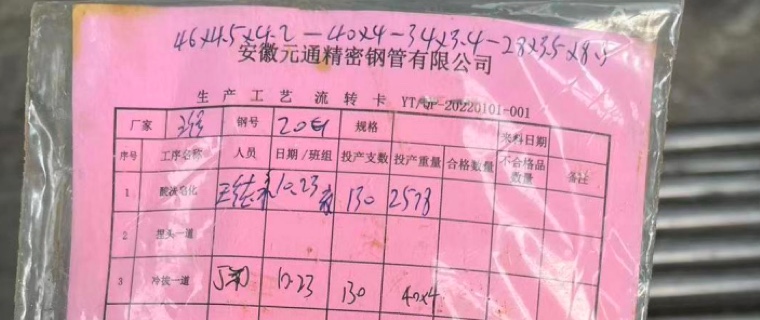 46×4.5×4.2-40×4-34×3.4-28×3.5×8.5
安徽元通精密钢管有限公司
生产工艺流转卡 YT/QP-20220101-001
厂家 钢号 20# 规格 来料日期
序号 工序名称 人员 日期/班组 投产支数 投产重量 合格数量 不合格品数量 备注
1 酸洗皂化 10.23 130 2578
2 捏头一道
3 冷拔一道 10-23 130 40×4